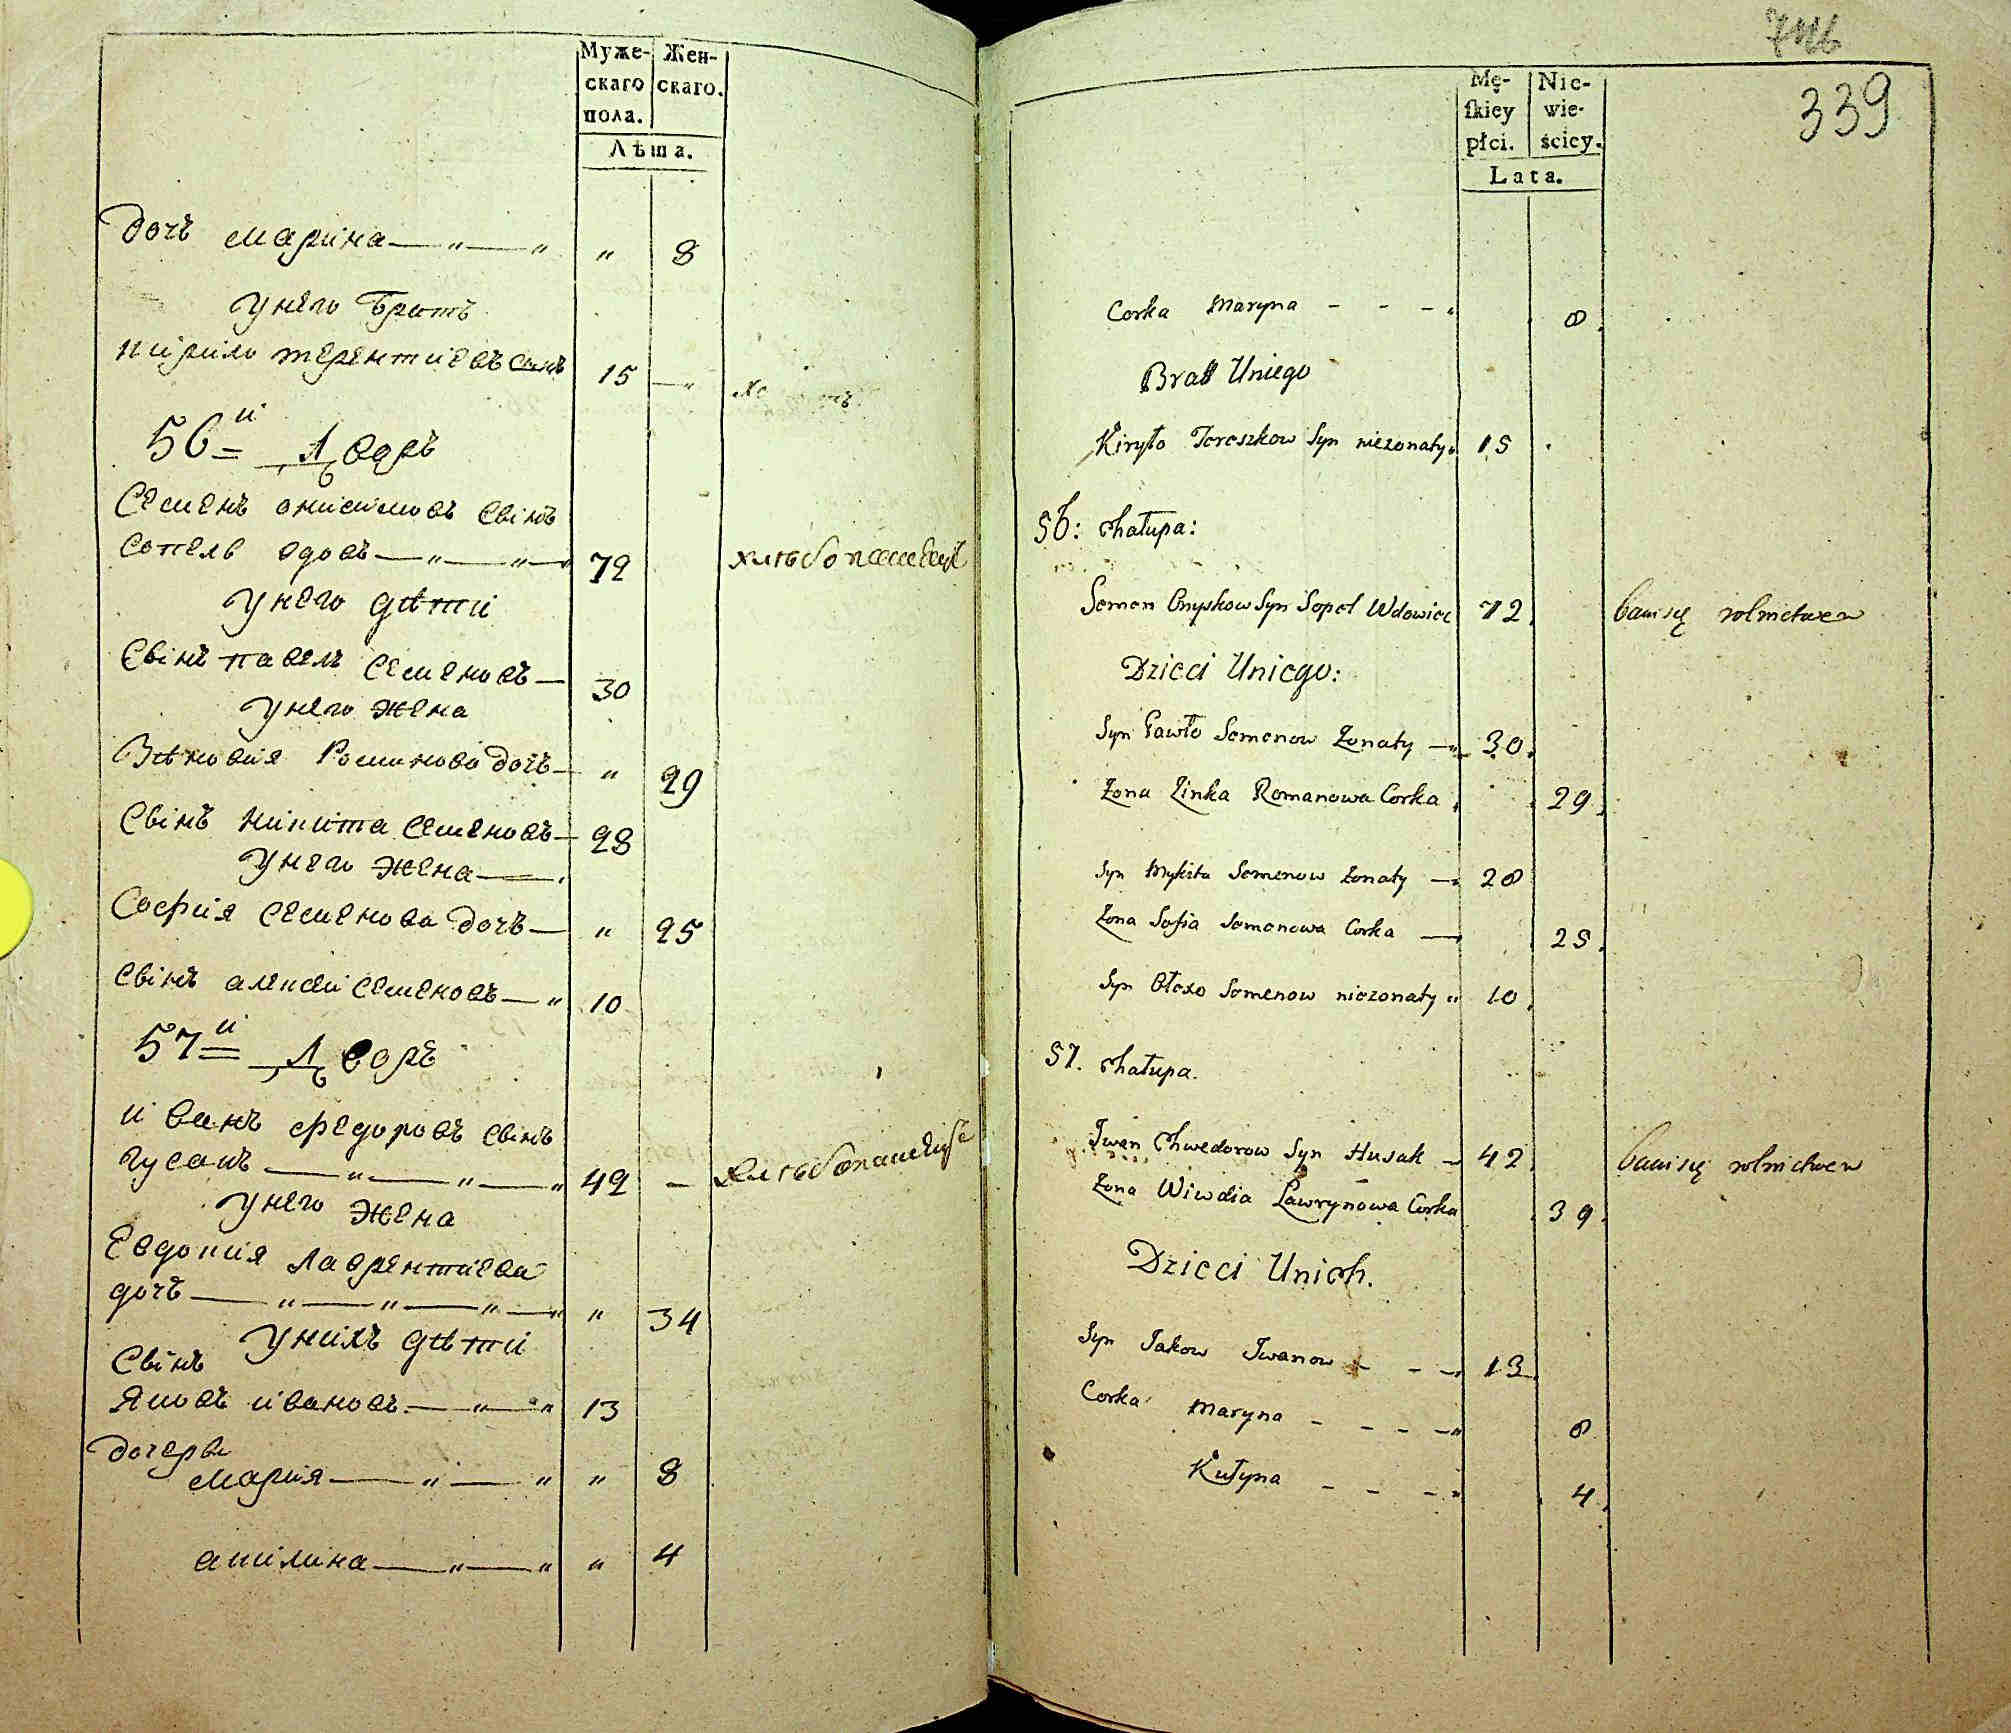 Муже-
скаго
пола.
Жен-
скаго.
Лѣта.
дочь марина — " — " " 8
У него братъ
кирило терентиевъ сынъ 15 — "
56й Дворъ
Семенъ онисимовъ сынъ
сопель вдовъ — " — " — " 72 хлѣбопашецъ
У него дѣти
Сынъ павелъ семеновъ — 30
У него жена
Зѣновия Романова дочь — " 29
Сынъ никита семеновъ — 28
У него жена — .
София семенова дочь — " 25
Сынъ алексѣй семеновъ — " 10
57й Дворъ
иванъ федоровъ сынъ
гусакъ — " — " — " 42 — хлѣбопашецъ
У него жена
Евдокия лаврентиева
дочь — " — " — " — " " 34
У нихъ дѣти
Сынъ
Яковъ ивановъ — " — " 13
дочери
мария — " — " " 8
акилина — " — " " 4
746
339
Mę-
skiey
płci.
Nie-
wie-
ścicy.
Lata.
Corka Maryna - - - " 8.
Bratt Uniego
Kiryło Tereszkow Syn niezonaty " 15
56: Chałupa:
Semen Onyskow Syn Sopel Wdowiec 72. bawi się rolnictwem
Dzieci Uniego:
Syn Pawło Semenow Zonaty — " 30.
Zona Zinka Romanowa Corka 29.
Syn Mykita Semenow Zonaty — " 28
Zona Sofia Semenowa Corka — 25.
Syn Ołexo Semenow niezonaty " 10.
57. Chałupa.
Iwan Chwedorow Syn Husak — 42. bawi się rolnictwem
Zona Wiwdia Ławrynowa Corka 39.
Dzieci Unich.
Syn Jakow Iwanow - - - " 13
Corka Maryna - - - - " 8
Kułyna - - - " 4.